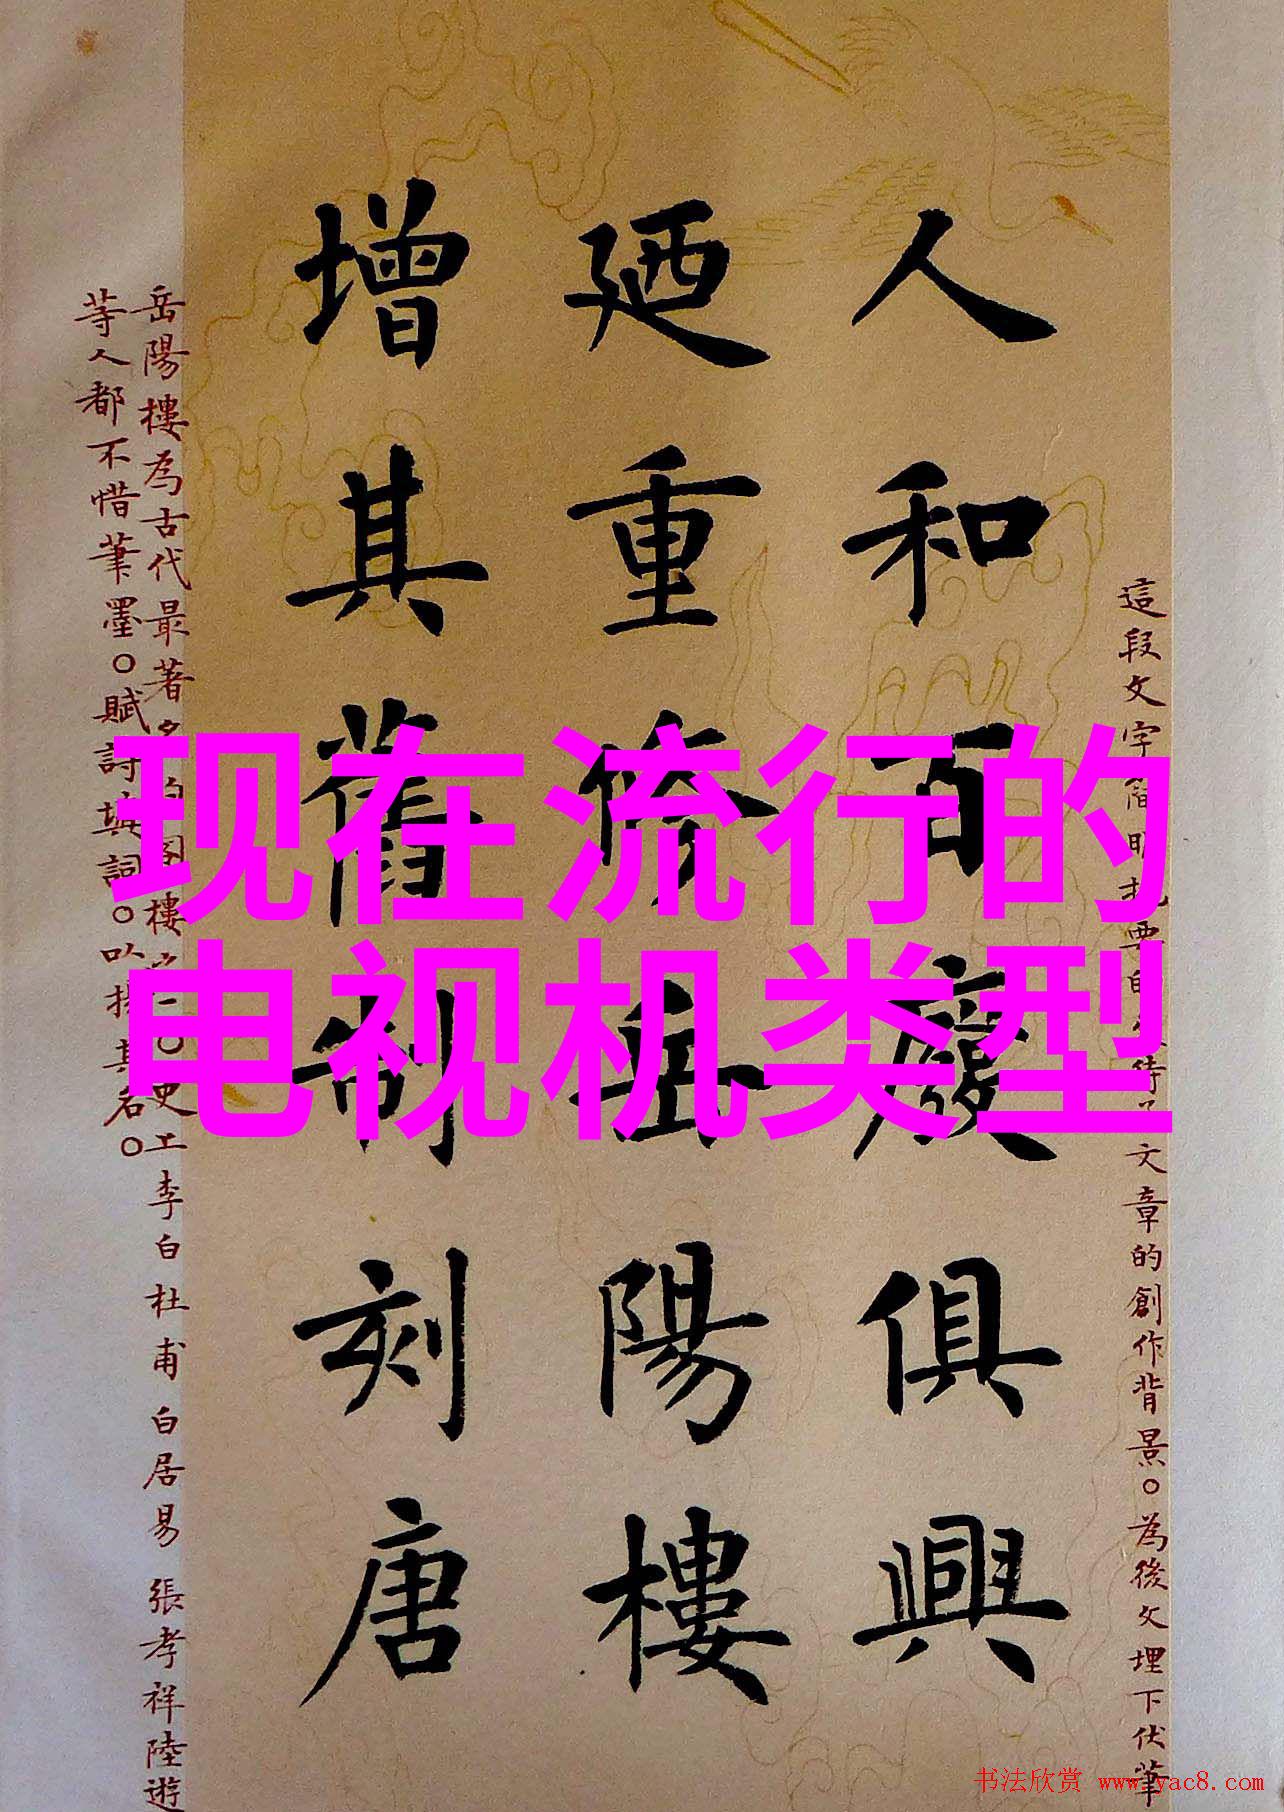 现在流行的
电视机类型
這段文字簡明扼要的
文章的創作背景。為後文埋下伏筆
人和百廢俱興
廼重修岳陽樓
增其舊制刻唐
岳陽樓為古代最著名的
樓之一。
李白杜甫白居易張孝祥陸遊
等人都不惜筆墨。賦詩填詞。以揚其名。
书法欣赏 www.yac8.com